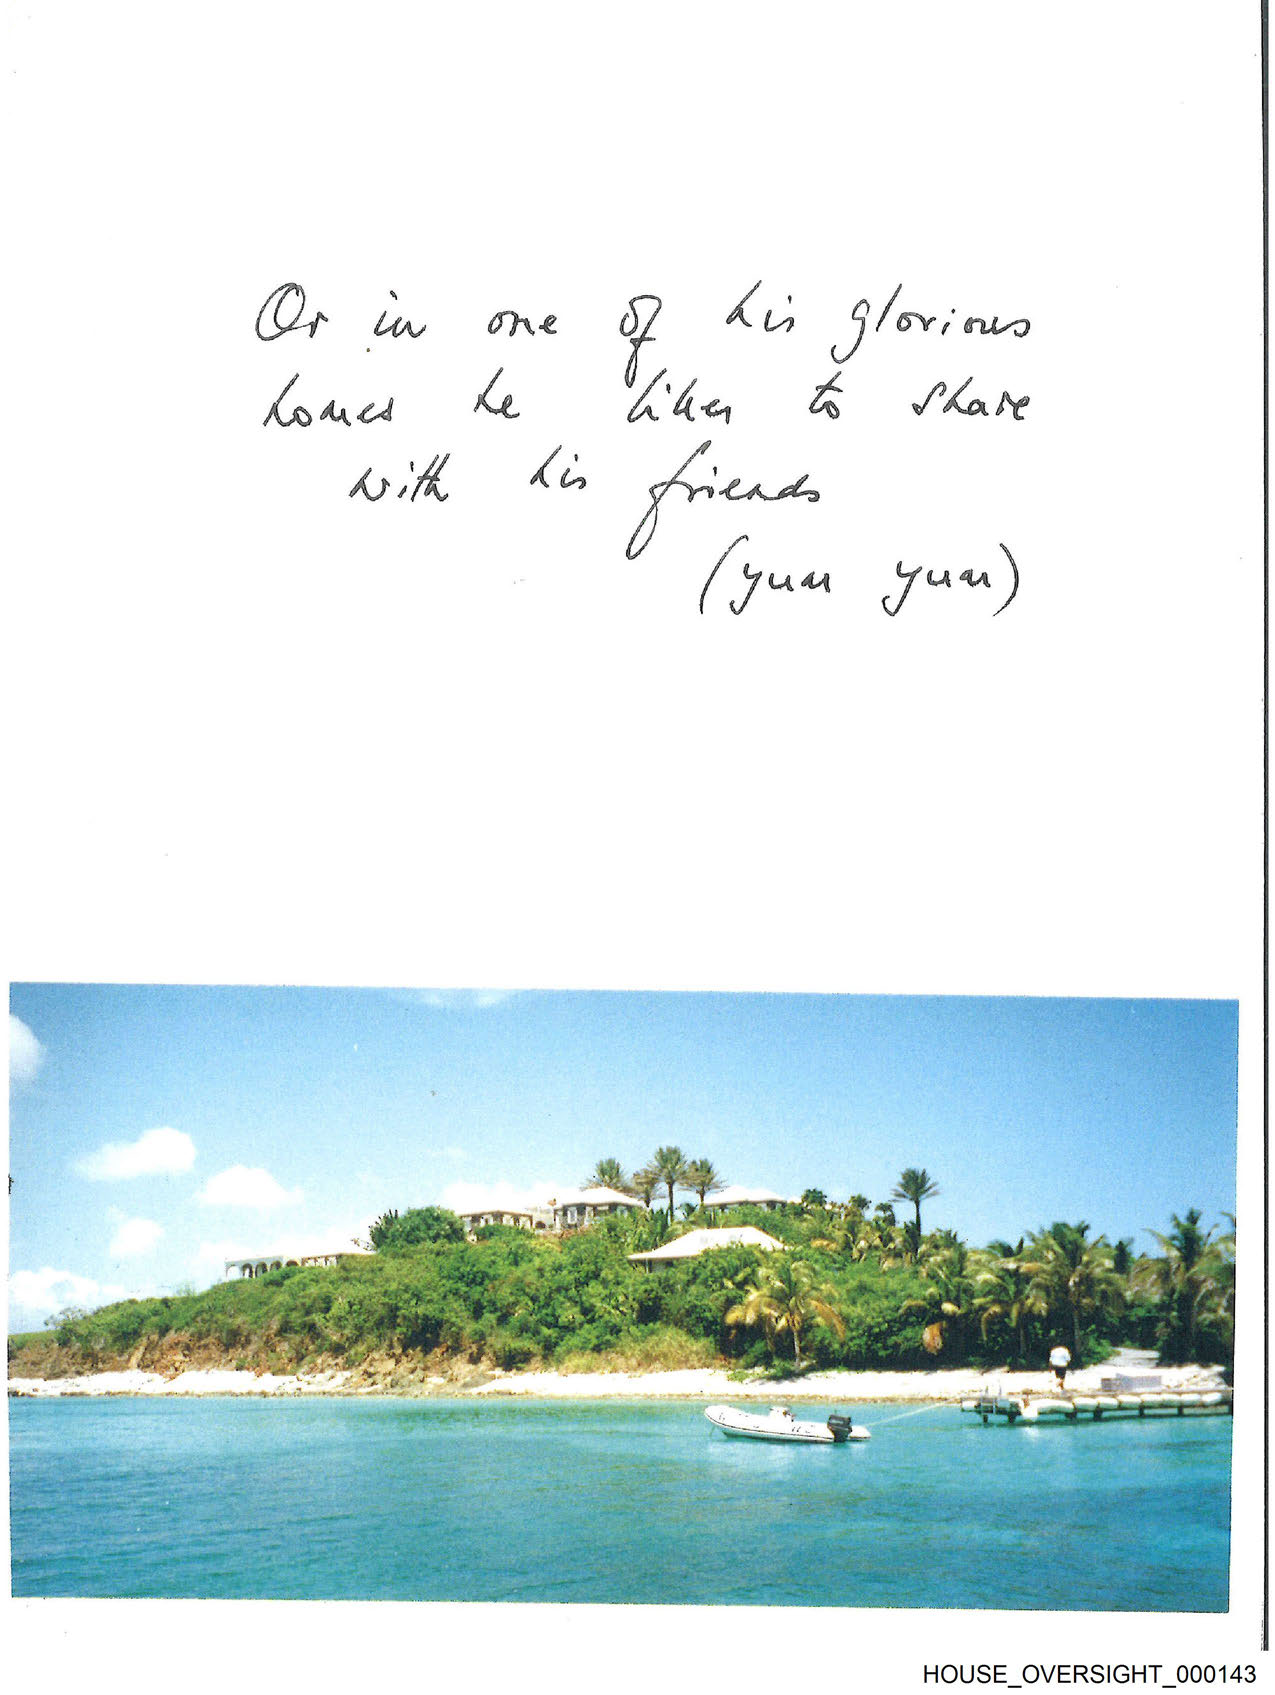 Or in one of his glorious
homes he likes to share
with his friends
(yum yum)
HOUSE_OVERSIGHT_000143